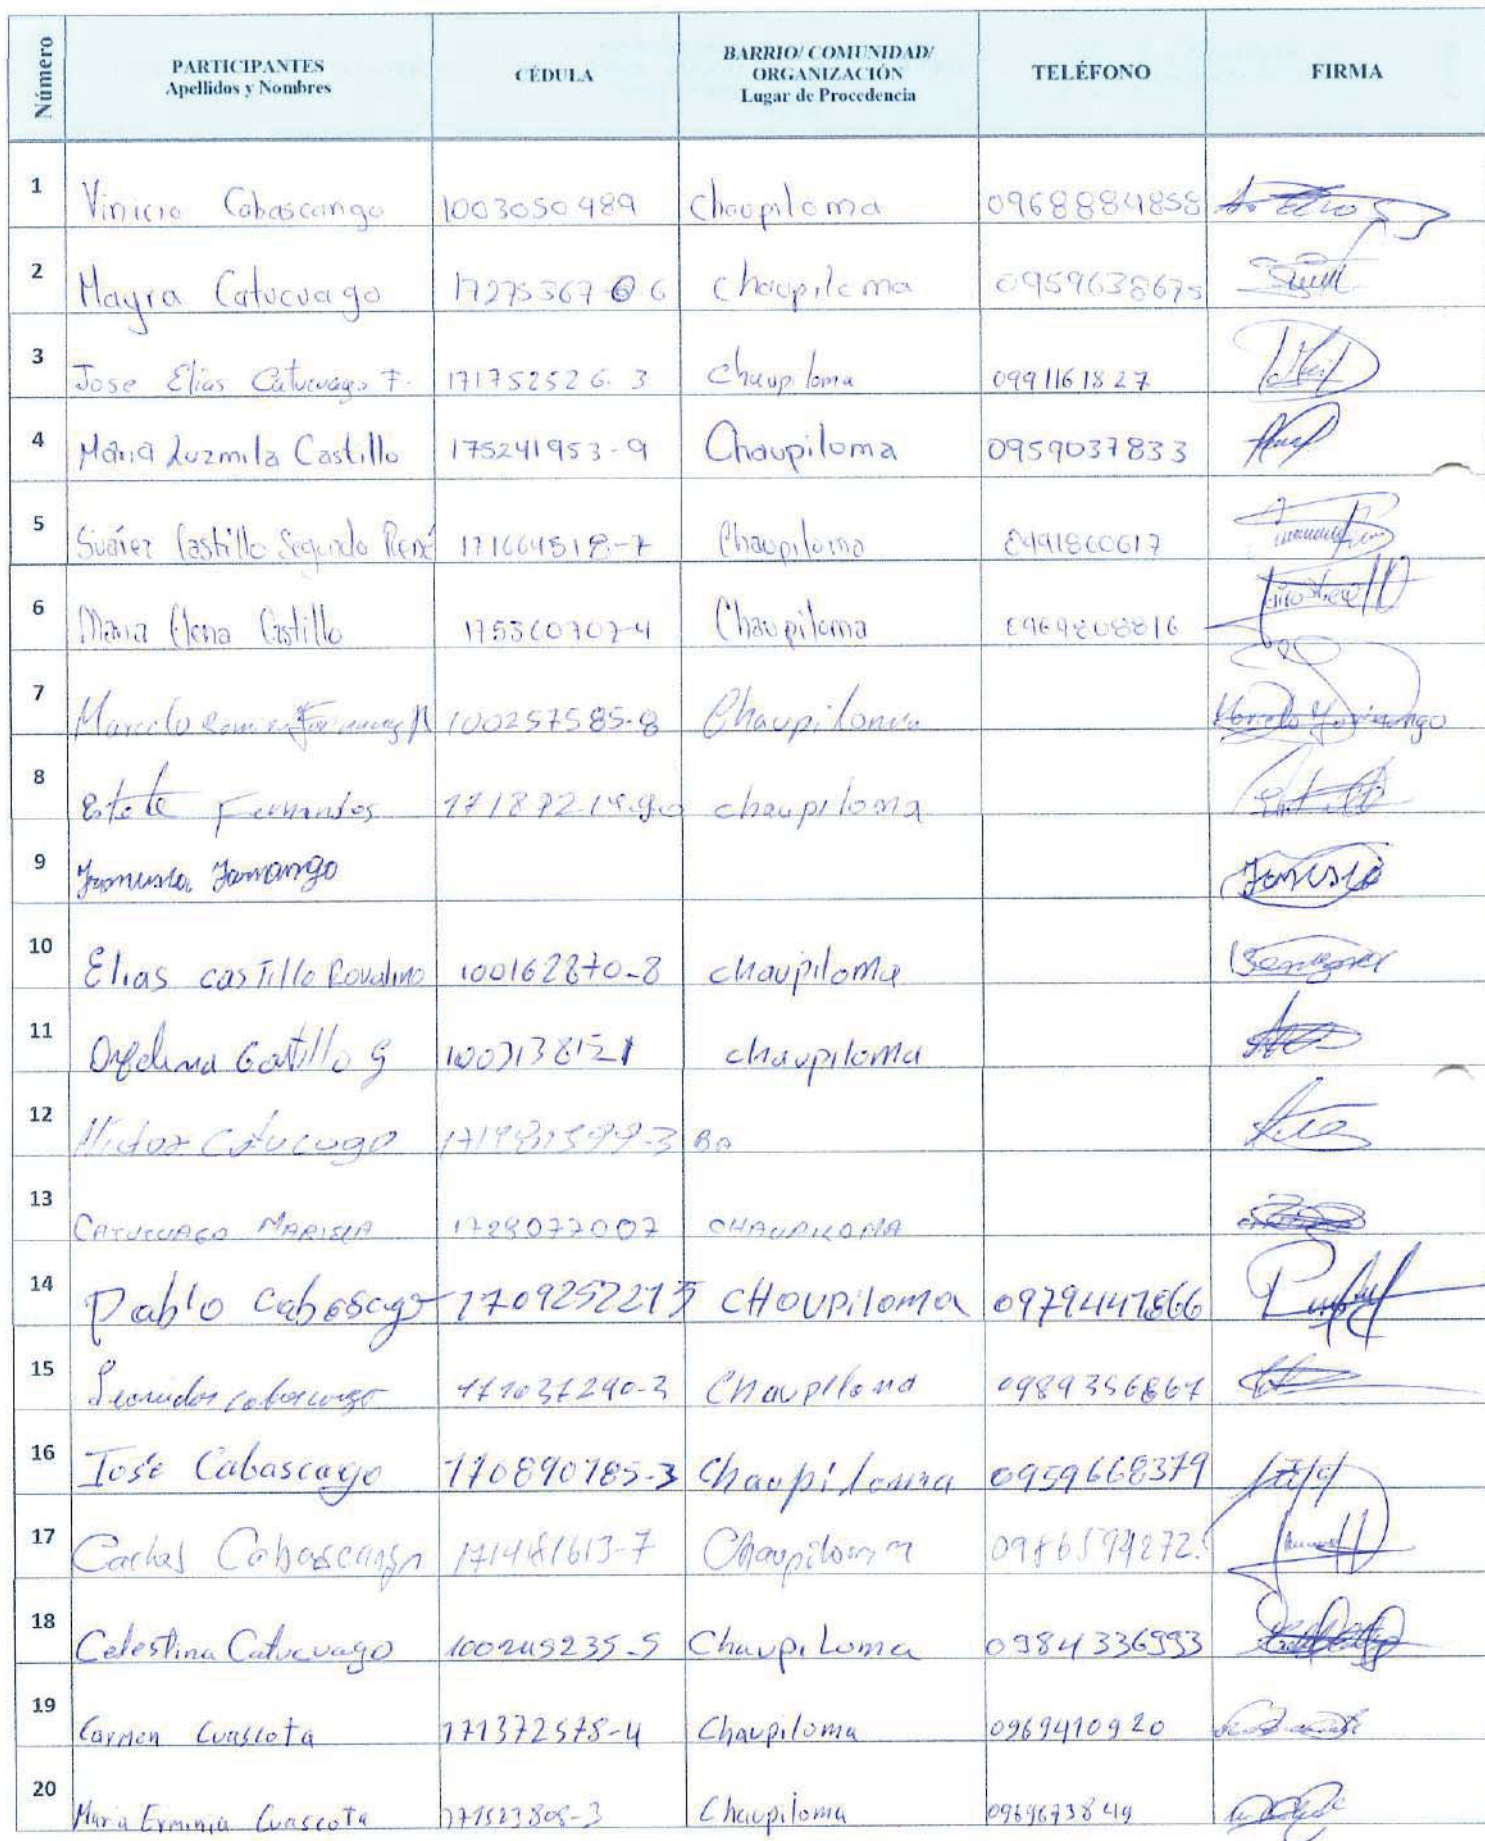 Número PARTICIPANTES Apellidos y Nombres CÉDULA BARRIO/ COMUNIDAD/ ORGANIZACIÓN Lugar de Procedencia TELÉFONO FIRMA
1 Vinicio Cabascango 1003050489 Chaupiloma 0968884858
2 Mayra Catucuago Chaupiloma 0959638675
3 Jose Elias Catucuago F. 171752526.3 Chaupiloma 0991161827
4 Maria Luzmila Castillo 175241953-9 Chaupiloma 0959037833
5 Suárez Castillo Segundo René 171664518-7 Chaupiloma 0991860617
6 Maria Elena Castillo 175360707-4 Chaupiloma 0969208816
7 Marcelo 100257585-8 Chaupiloma Marcelo Farinango
8 Fernandos chaupiloma
9
10 Elias casTillo Rovalino 100162870-8 chaupiloma
11 Castillo G 1003138121 chaupiloma
12 Catucuago
13 CATUCUAGO MARISELA 1729077007 CHAUPILOMA
14 Pablo Cabascago 1709252215 CHOUPiloma 0979447866
15 171037290-3 Chaupiloma 0989356867
16 José Cabascago 170890785-3 Chaupiloma 0959668379
17 Cabascango 171481613-7 Chaupiloma
18 Celestina Catucuago 100245235-5 ChaupiLoma 0984336993
19 Carmen Cuascota 171372575-4 Chaupiloma 0969410920
20 Maria Erminia Cuascota 171523808-3 Chaupiloma 0969673849